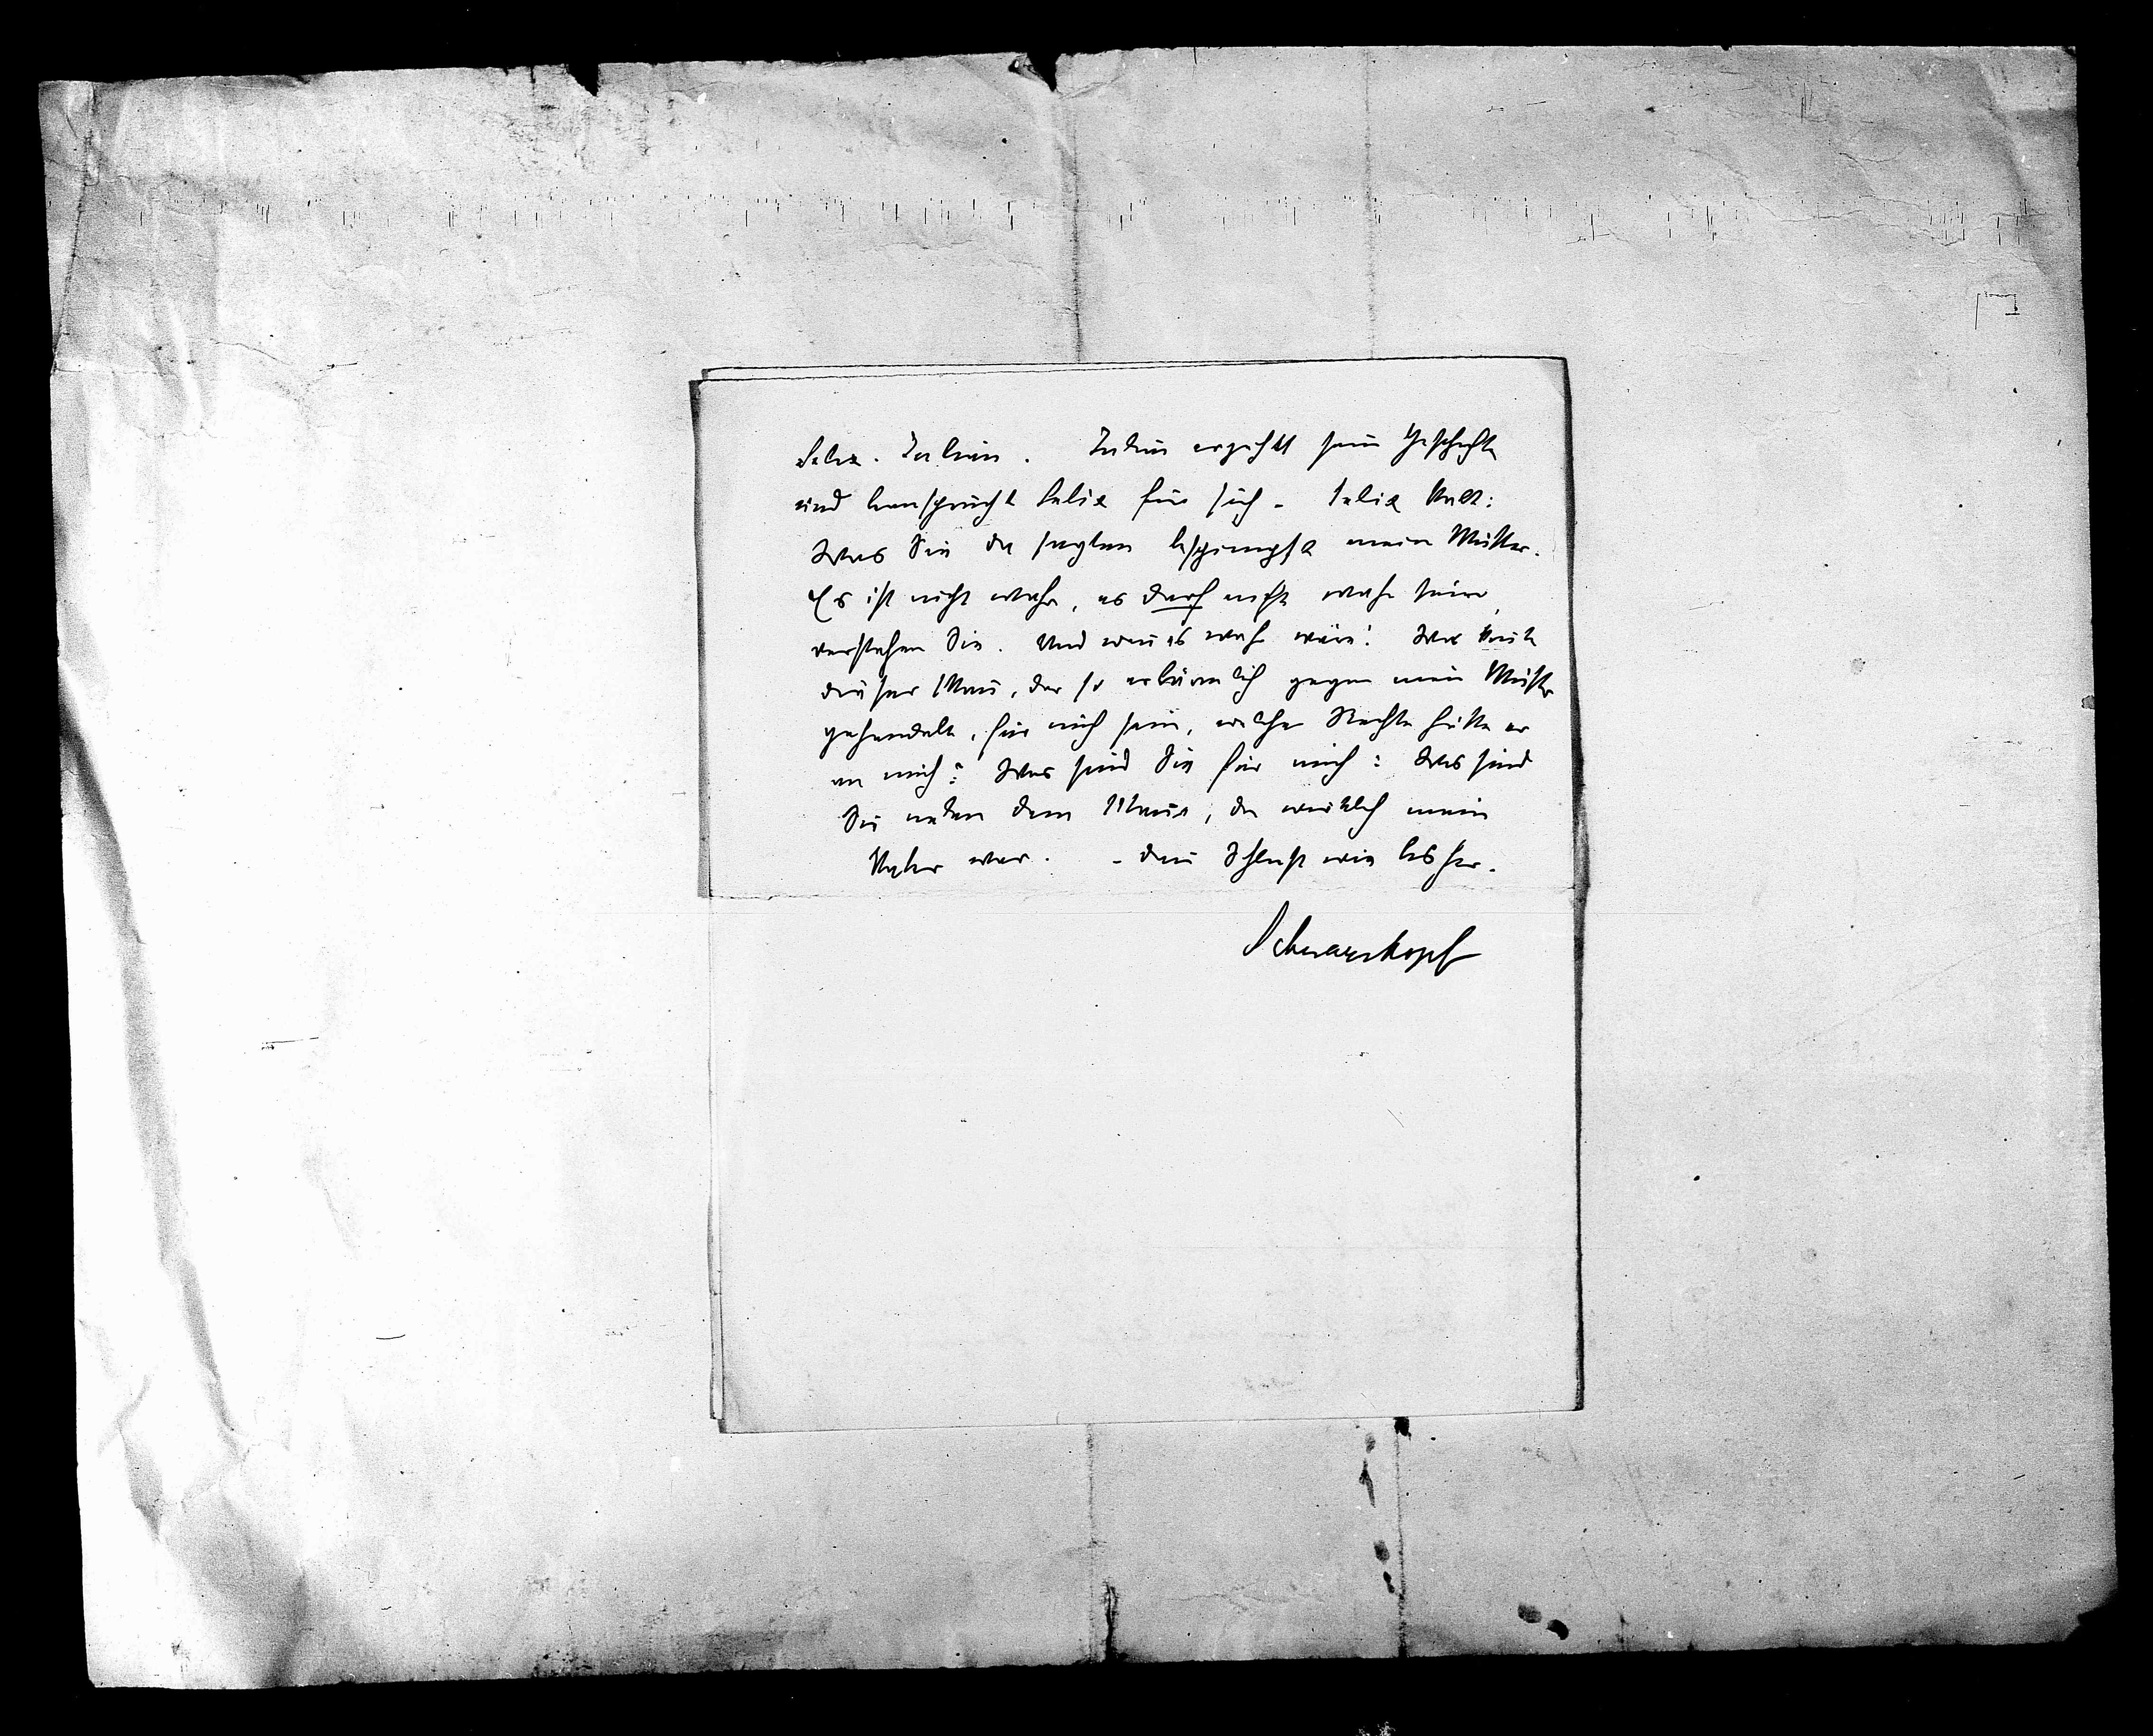 Felix. Julian. Julian erzählt seine Geschichte
und beansprucht Felix für sich – Felix kalt:
Was Sie da sagten beschimpft meine Mutter.
Es ist nicht wahr, es darf nicht wahr sein,
verstehen Sie. Und wenn es wahr wäre! Was könnte
dieser Mann, der so erbärmlich gegen meine Mutter
gehandelt, für mich sein, welche Rechte hätte er
an mich? Was sind Sie für mich? Was sind
Sie neben dem Manne, der wirklich mein
Vater war. – dann Schluß wie bisher.
Schwarzkopf